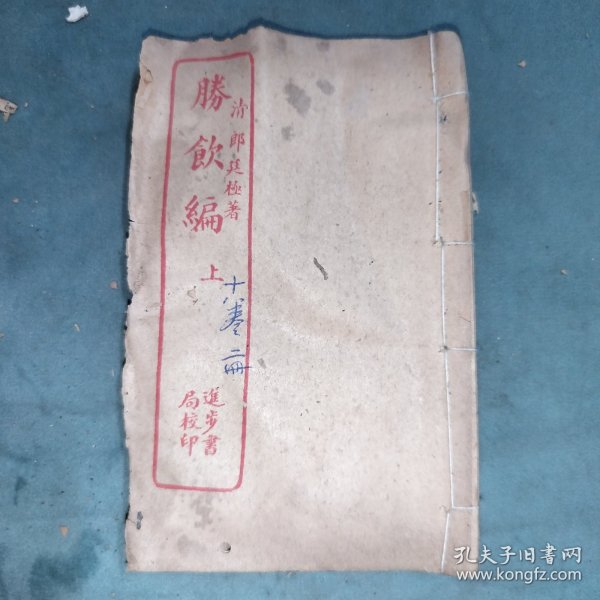 清郎廷極著
勝飲編
上
十八卷二冊
進步書
局校印
孔夫子旧书网
www.kongfz.com